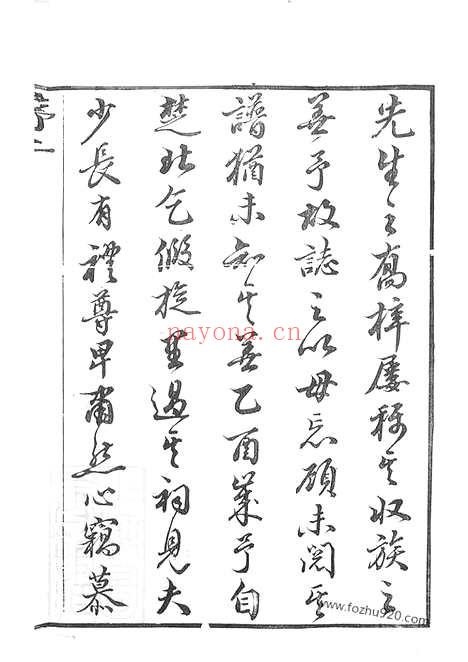 先生之喬梓屢稱其收族之
善予故誌之以毋忘顧未閱其
譜猶未知其善乙酉歲予自
楚北乞假旋里過其祠見夫
少長有禮尊卑肅然心竊慕
序
nayona.cn
www.fozhu920.com